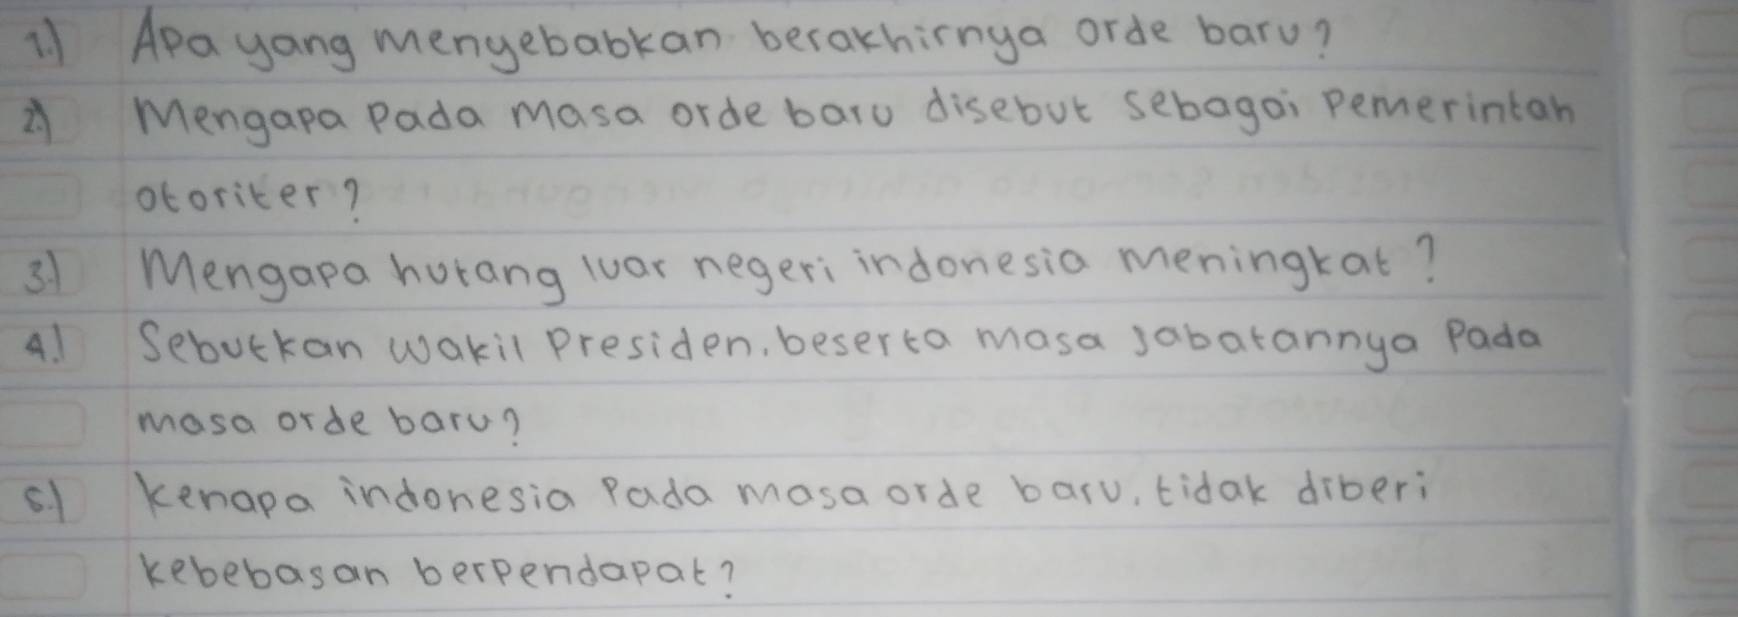 1.) Apa yang menyebabkan berakhirnya orde baru?
2.) Mengapa pada masa orde baru disebut sebagai pemerintah
otoriter?
3.) Mengapa hutang luar negeri indonesia meningkat?
4.) Sebutkan wakil presiden, beserta masa jabatannya pada
masa orde baru?
5.) kenapa indonesia pada masa orde baru, tidak diberi
kebebasan berpendapat?